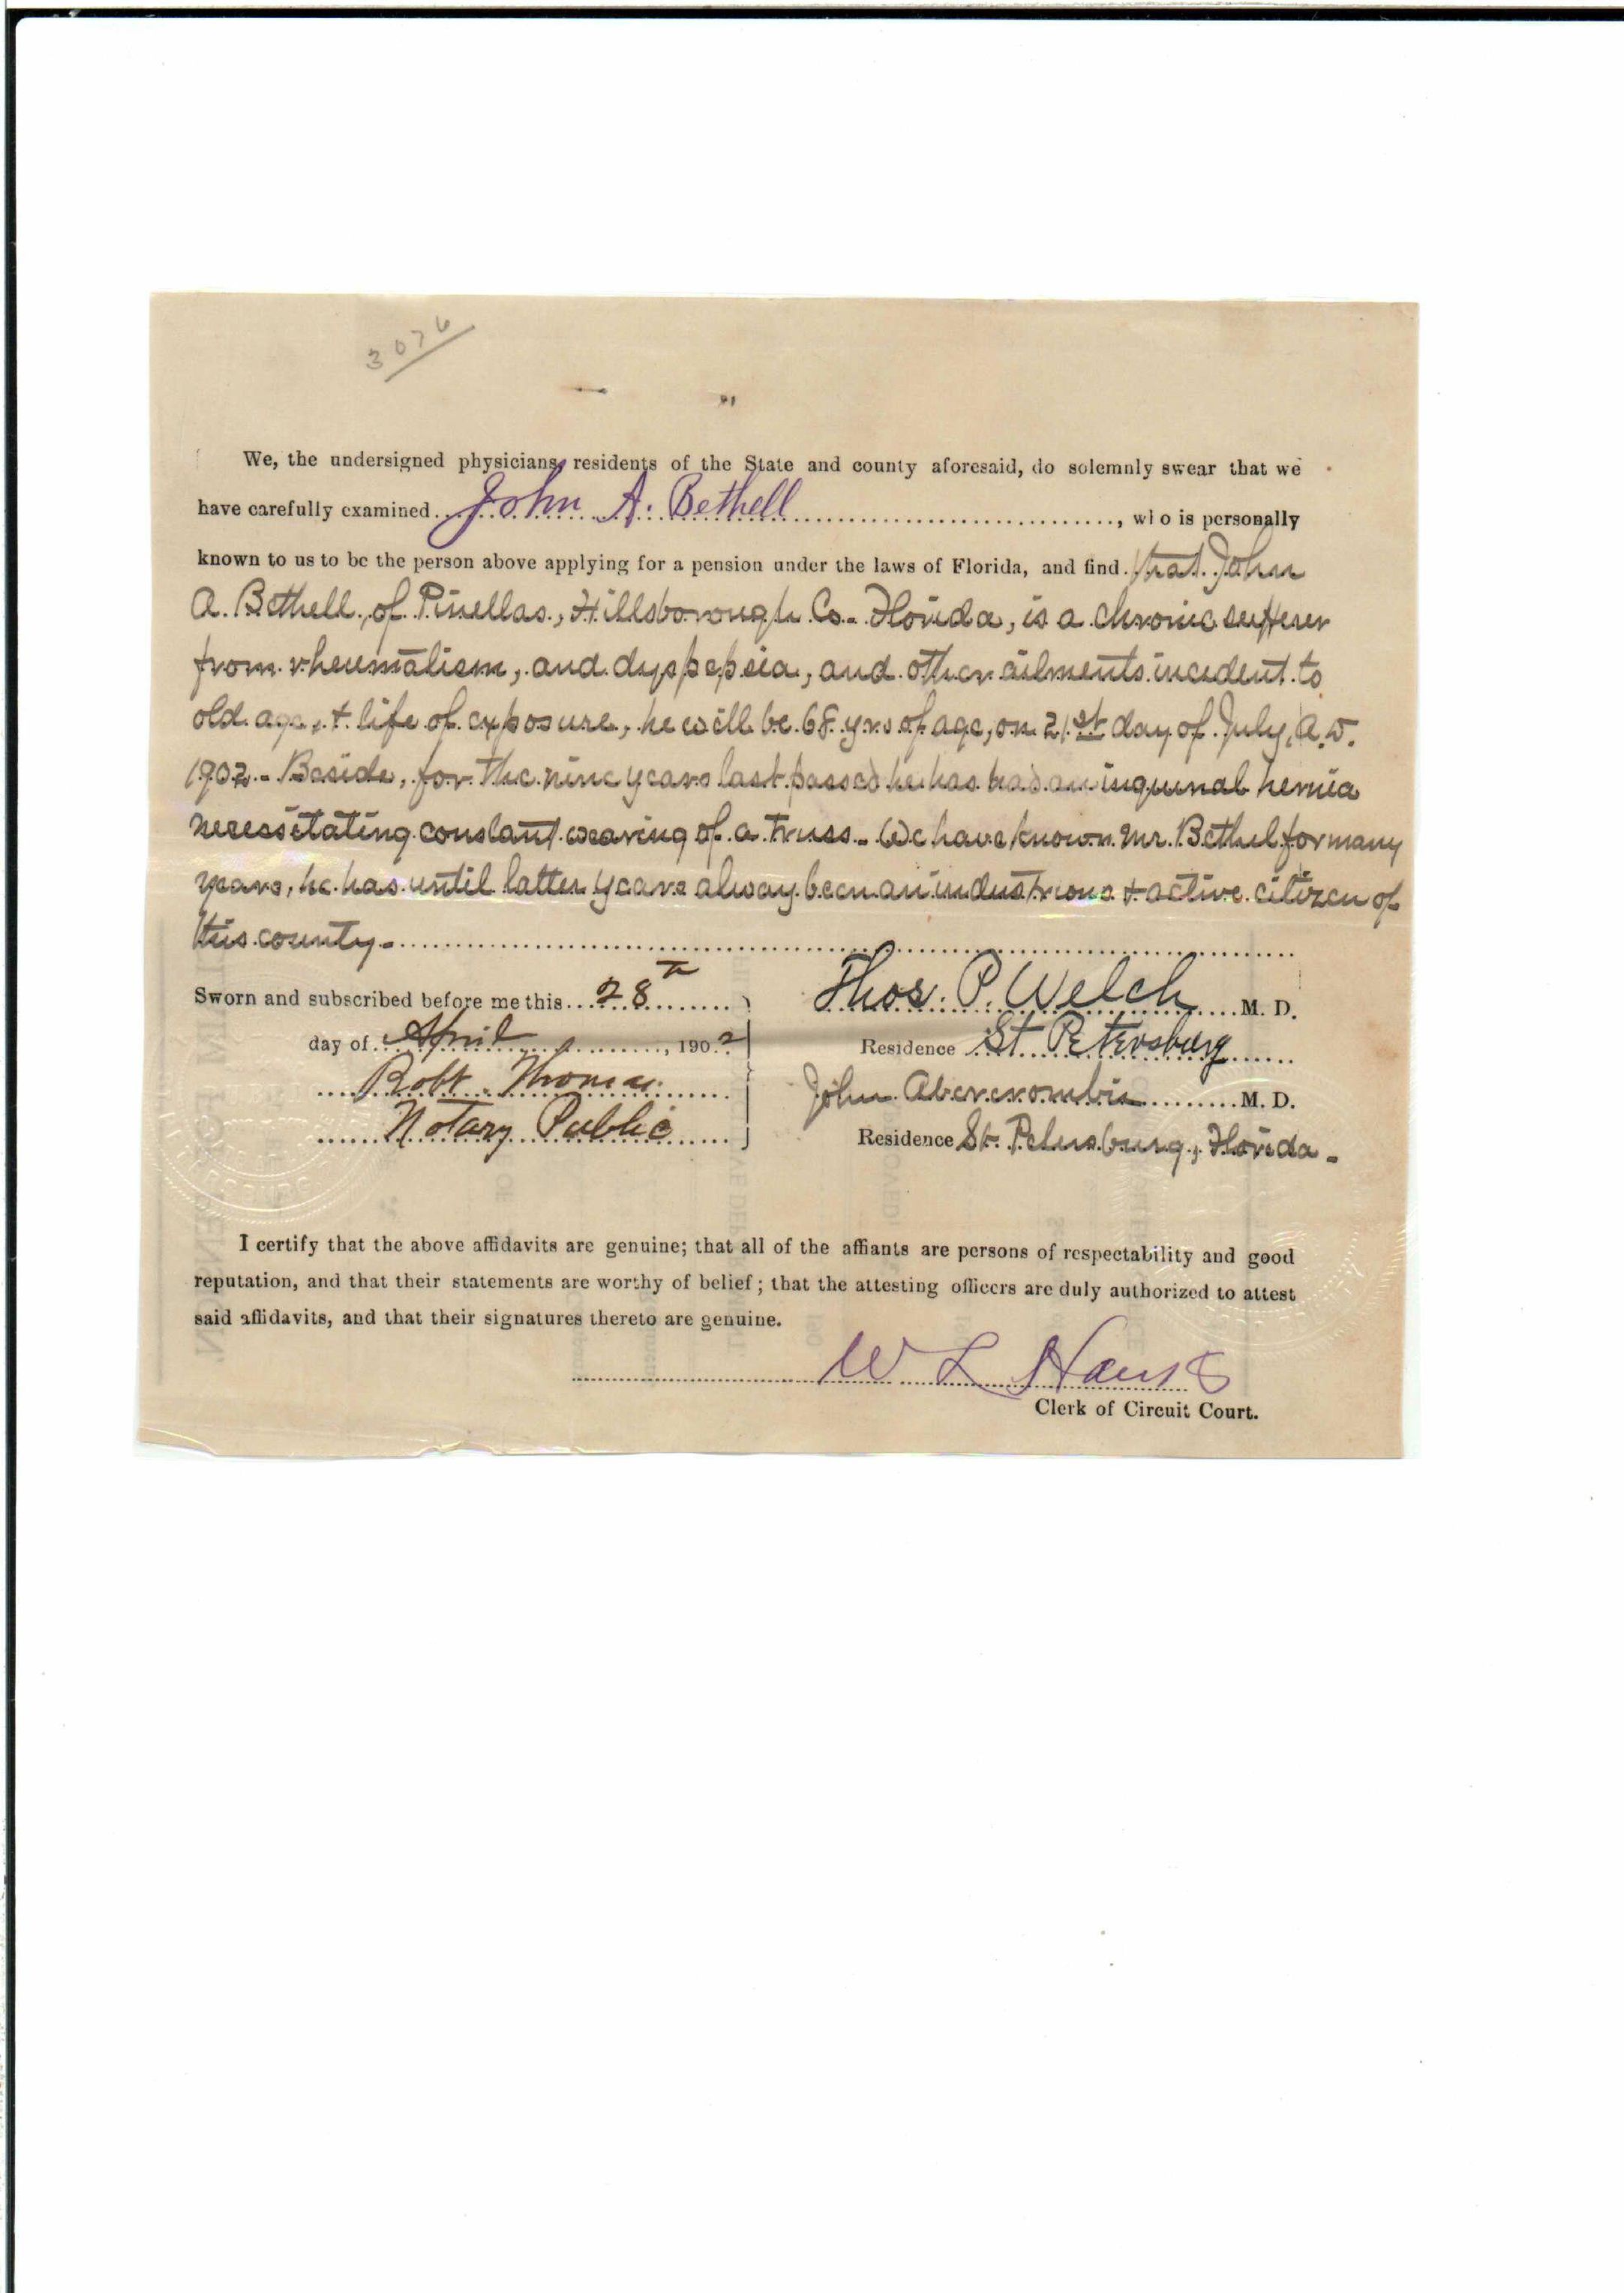 3076
We, the undersigned physicians, residents of the State and county aforesaid, do solemnly swear that we
have carefully examined John A. Bethell, who is personally
known to us to be the person above applying for a pension under the laws of Florida, and find that John
A. Bethell, of Pinellas, Hillsborough Co. Florida, is a chronic sufferer
from rheumatism, and dyspepsia, and other ailments incedent to
old age, & life of exposure, he will be 68 yrs of age, on 21st day of July, A.D.
1902 - Beside, for the nine years last passed he has had an inguinal hernia
necessitating constant wearing of a truss - We have known Mr. Bethel for many
years, he has until latter years alway been an industrious & active citizen of
this county -
Sworn and subscribed before me this 28th
day of April, 1902
Robt. Thomas
Notary Public
Thos. P. Welch M. D.
Residence St Petersburg
John Abercrombie M. D.
Residence St. Petersburg, Florida -
I certify that the above affidavits are genuine; that all of the affiants are persons of respectability and good
reputation, and that their statements are worthy of belief; that the attesting officers are duly authorized to attest
said affidavits, and that their signatures thereto are genuine.
W L Hanks
Clerk of Circuit Court.